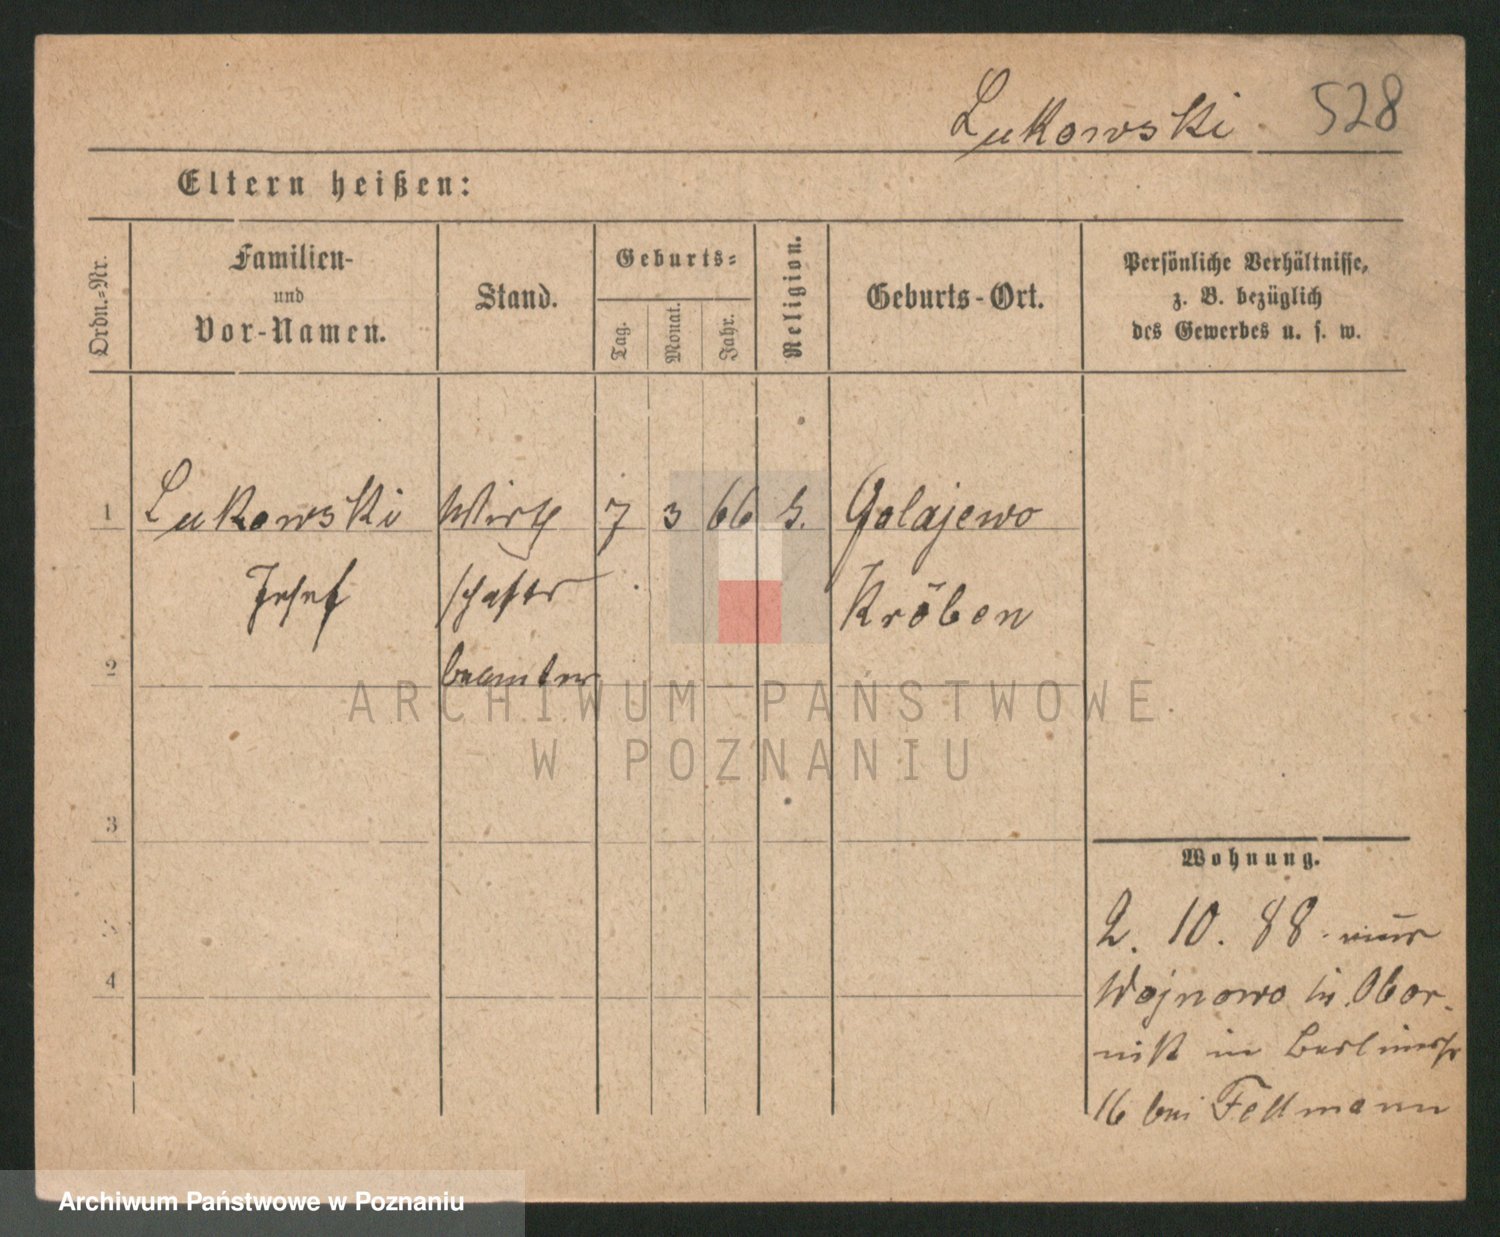 Lukowski. 528
Eltern heißen:
Ordn.-Nr.
Familien-
und
Vor-Namen.
Stand.
Geburts-
Tag.
Monat.
Jahr.
Religion.
Geburts-Ort.
Persönliche Verhältnisse,
z. B. bezüglich
des Gewerbes u. s. w.
1 Lukowski Wirth 7 3 66 Golajewo
Josef schafts Kröben
2 beamter
3
4
Wohnung.
2. 10. 88.
Wojnowo in Obor-
nik in Berlinerstr
16 bei Fellmann
ARCHIWUM PAŃSTWOWE
W POZNANIU
Archiwum Państwowe w Poznaniu